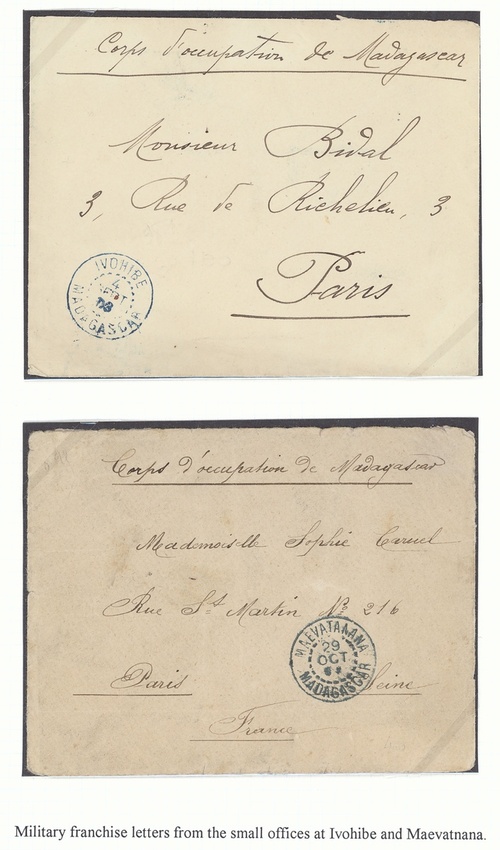 Corps d'occupation de Madagascar
Monsieur Bidal
3, Rue de Richelieu, 3
Paris
IVOHIBE
4
SEPT
MADAGASCAR
Corps d'occupation de Madagascar
Mademoiselle Sophie Caruel
Rue St Martin No 216
MAEVATANANA
29
OCT
MADAGASCAR
Paris Seine
France
Military franchise letters from the small offices at Ivohibe and Maevatnana.